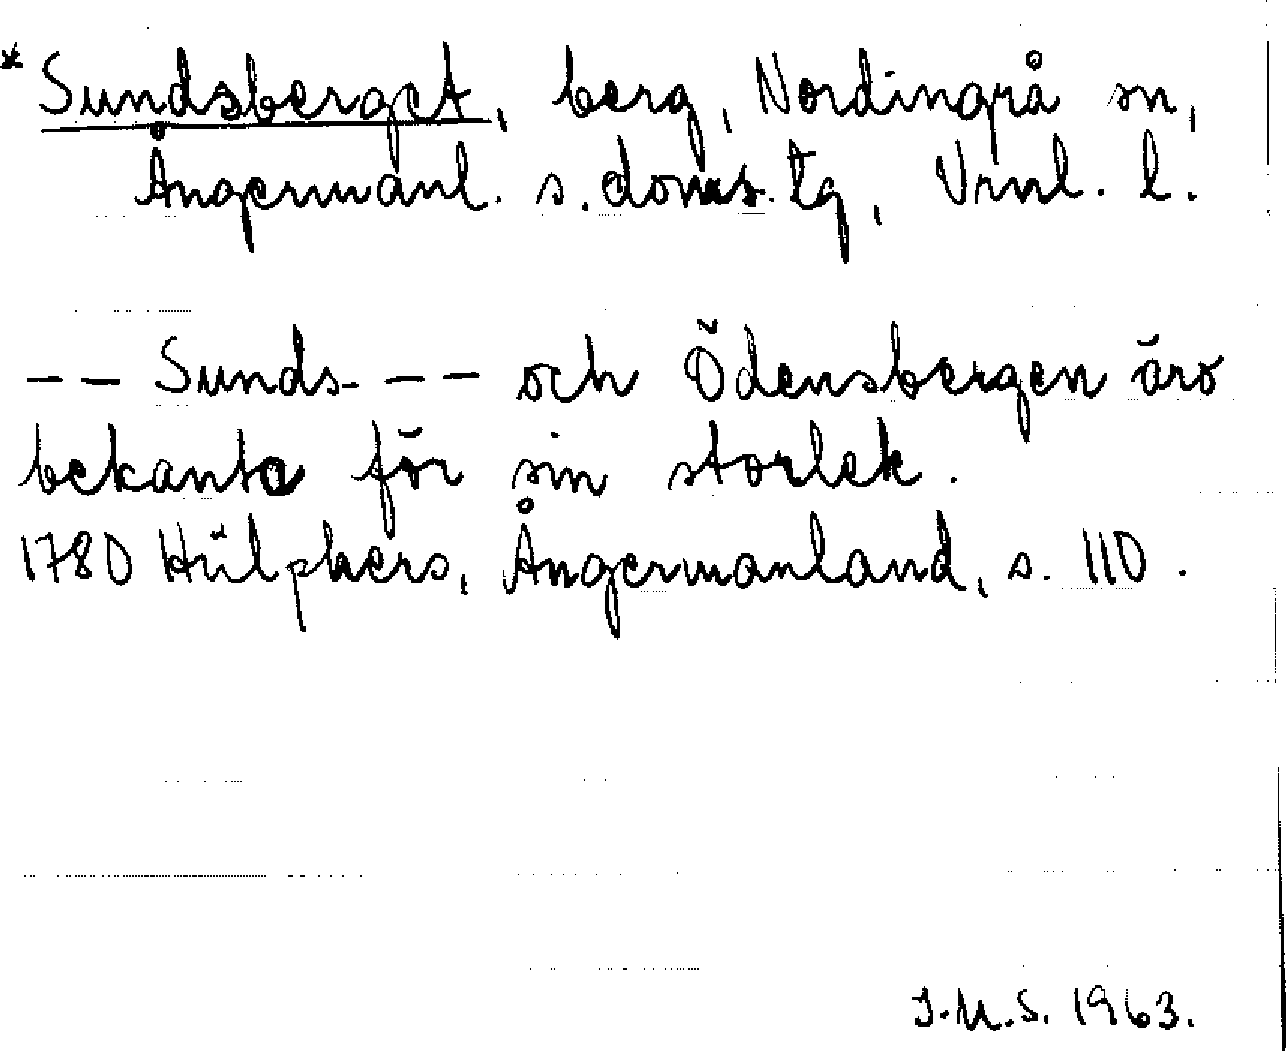 * Sundsberget, berg, Nordingrå sn,
Ångermanl. s. doms. tg, Vrnl. l.
-- Sunds- -- och Ödensbergen äro
bekanta för sin storlek.
1780 Hülphers, Ångermanland, s. 110.
J.M.S. 1963.